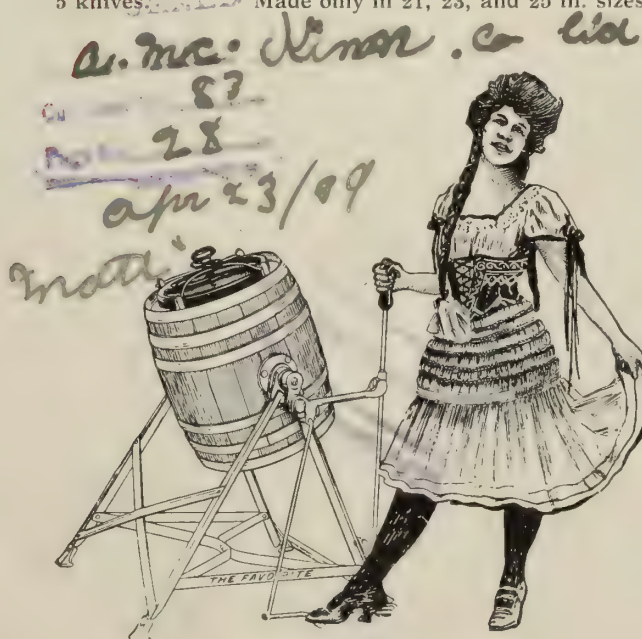 5 knives. Made only in 21, 23, and 25 in. sizes
a. mc. Kinon. Co Ltd
87
28
apr 23/09
Matt"
THE FAVORITE